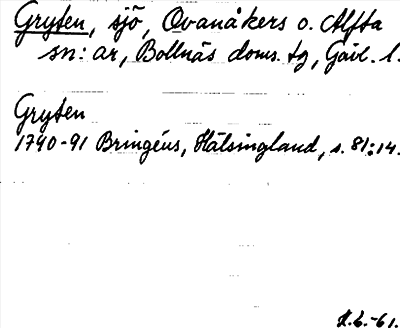 Gryten, sjö, Ovanåkers o. Alfta
sn:ar, Bollnäs doms. tg, Gävl. l.
Gryten
1790-91 Bringéus, Hälsingland, s. 81:14.
H.L.-61.